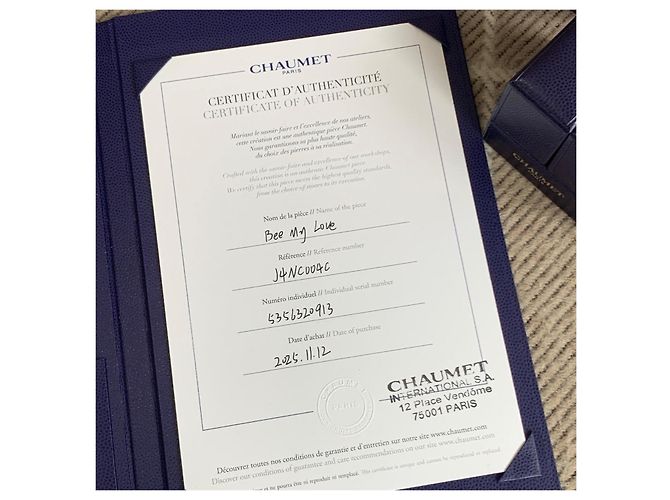 CHAUMET
PARIS
CERTIFICAT D'AUTHENTICITÉ
CERTIFICATE OF AUTHENTICITY
Mariant le savoir-faire et l'excellence de nos ateliers,
cette création est une authentique pièce Chaumet.
Nous garantissons sa plus haute qualité,
du choix des pierres à sa réalisation.
Crafted with the savoir-faire and excellence of our workshops,
this creation is an authentic Chaumet piece.
We certify that this piece meets the highest quality standards,
from the choice of stones to its execution.
Nom de la pièce // Name of the piece
Bee My Love
Référence // Reference number
J4NC00AC
Numéro individuel // Individual serial number
5356320913
Date d'achat // Date of purchase
2025.11.12
CHAUMET
INTERNATIONAL S.A.
12 Place Vendôme
75001 PARIS
CHAUMET
PARIS
Découvrez toutes nos conditions de garantie et d'entretien sur notre site www.chaumet.com
Discover our conditions of guarantee and care recommendations on our site www.chaumet.com
et ne pourra être ni reproduit ni remplacé. This certificate is unique and cannot be reproduced or replaced.
CHAUMET